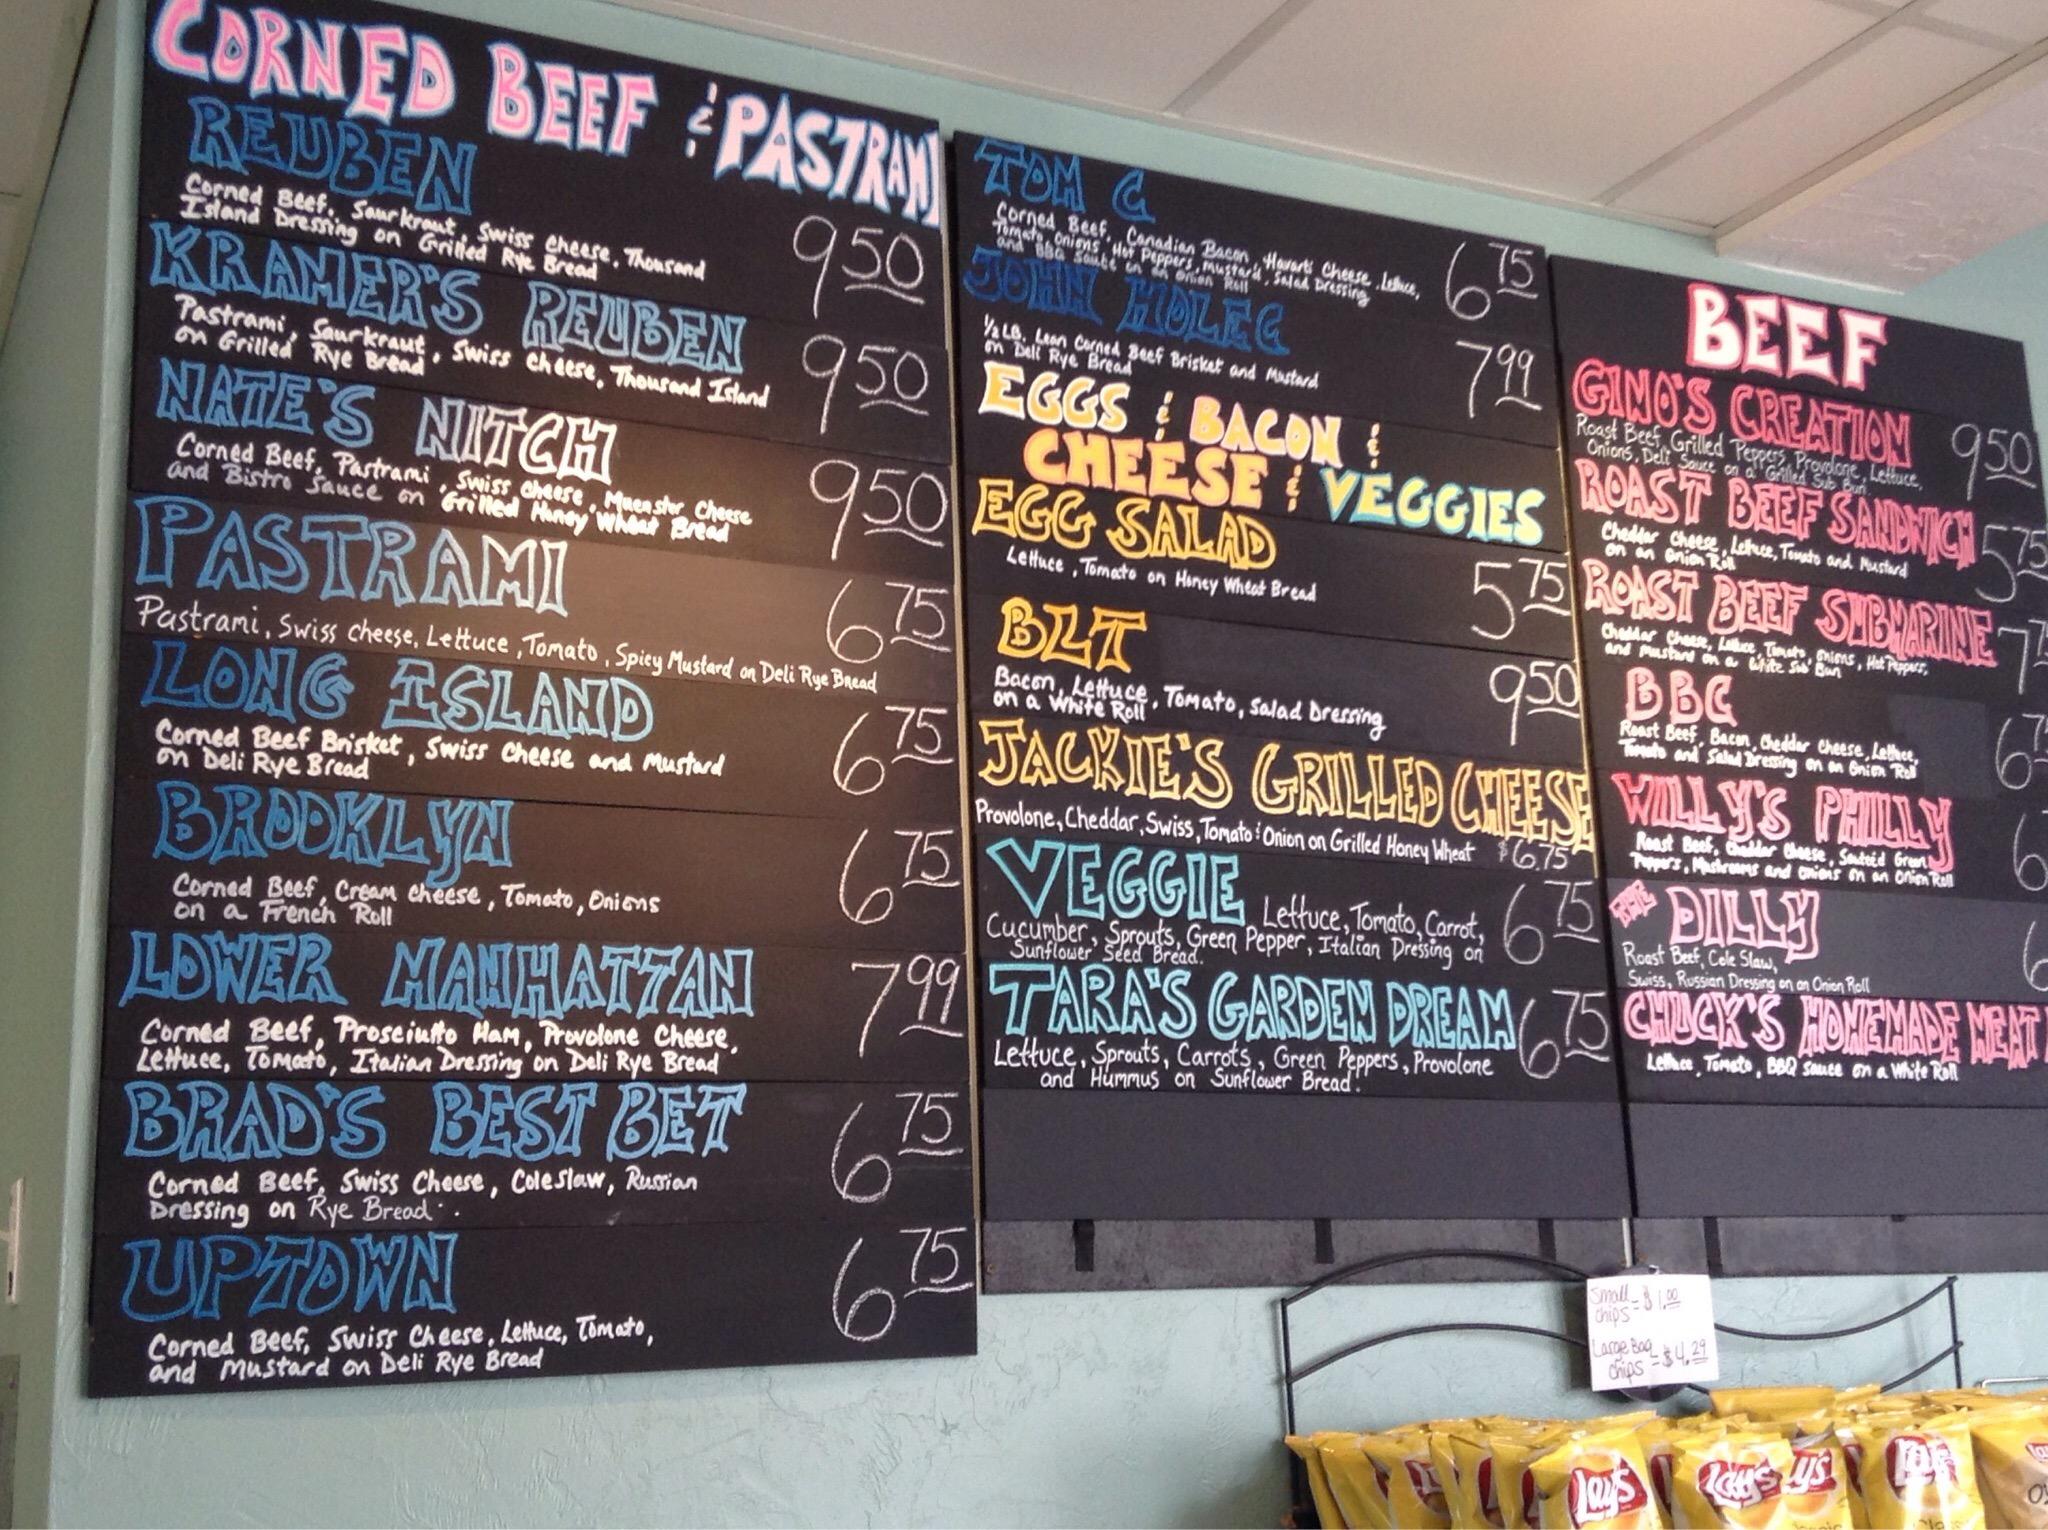 CORNED BEEF & PASTRAMI
REUBEN
Corned Beef, Saurkraut, Swiss Cheese, Thousand
Island Dressing on Grilled Rye Bread
9.50
KRAMER'S REUBEN
Pastrami, Saurkraut, Swiss Cheese, Thousand Island
on Grilled Rye Bread
9.50
NATE'S NITCH
Corned Beef, Pastrami, Swiss Cheese, Muenster Cheese
and Bistro Sauce on Grilled Honey Wheat Bread
9.50
PASTRAMI
6.75
Pastrami, Swiss cheese, Lettuce, Tomato, Spicy Mustard on Deli Rye Bread
LONG ISLAND
Corned Beef Brisket, Swiss Cheese and Mustard
on Deli Rye Bread
6.75
BROOKLYN
Corned Beef, Cream cheese, Tomato, Onions
on a French Roll
6.75
LOWER MANHATTAN
Corned Beef, Prosciutto Ham, Provolone Cheese,
Lettuce, Tomato, Italian Dressing on Deli Rye Bread
7.99
BRAD'S BEST BET
Corned Beef, Swiss Cheese, Coleslaw, Russian
Dressing on Rye Bread..
6.75
UPTOWN
Corned Beef, Swiss Cheese, Lettuce, Tomato,
and Mustard on Deli Rye Bread
6.75
TOM C
Corned Beef, Canadian Bacon, Havarti Cheese, Lettuce,
Tomato, Onions, Hot Peppers, Mustard, Salad Dressing
and BBQ Sauce on an Onion Roll
6.75
JOHN HOLEC
1/2 LB. Lean Corned Beef Brisket and Mustard
on Deli Rye Bread
7.99
EGGS & BACON &
CHEESE & VEGGIES
EGG SALAD
Lettuce, Tomato on Honey Wheat Bread
5.75
BLT
Bacon, Lettuce, Tomato, Salad Dressing
on a White Roll
9.50
JACKIE'S GRILLED CHEESE
Provolone, Cheddar, Swiss, Tomato & Onion on Grilled Honey Wheat $6.75
VEGGIE Lettuce, Tomato, Carrot,
Cucumber, Sprouts, Green Pepper, Italian Dressing on
Sunflower Seed Bread.
6.75
TARA'S GARDEN DREAM
Lettuce, Sprouts, Carrots, Green Peppers, Provolone
and Hummus on Sunflower Bread.
6.75
BEEF
GINO'S CREATION
Roast Beef, Grilled Peppers, Provolone, Lettuce,
Onions, Deli Sauce on a Grilled Sub Bun.
9.50
ROAST BEEF SANDWICH
Cheddar Cheese, Lettuce, Tomato and Mustard
on an Onion Roll
5.75
ROAST BEEF SUBMARINE
Cheddar Cheese, Lettuce, Tomato, Onions, Hot Peppers,
and Mustard on a White Sub Bun
7
BBC
Roast Beef, Bacon, Cheddar Cheese, Lettuce,
Tomato and Salad Dressing on an Onion Roll
6.75
WILLY'S PHILLY
Roast Beef, Cheddar Cheese, Sauteéd Green
Peppers, Mushrooms and Onions on an Onion Roll
6
THE DILLY
Roast Beef, Cole Slaw,
Swiss, Russian Dressing on an Onion Roll
6
CHUCK'S HOMEMADE MEAT
Lettuce, Tomato, BBQ Sauce on a White Roll
Small
chips = $1.00
Large Bag
chips = $4.29
Lay's
Lay's
Lay's